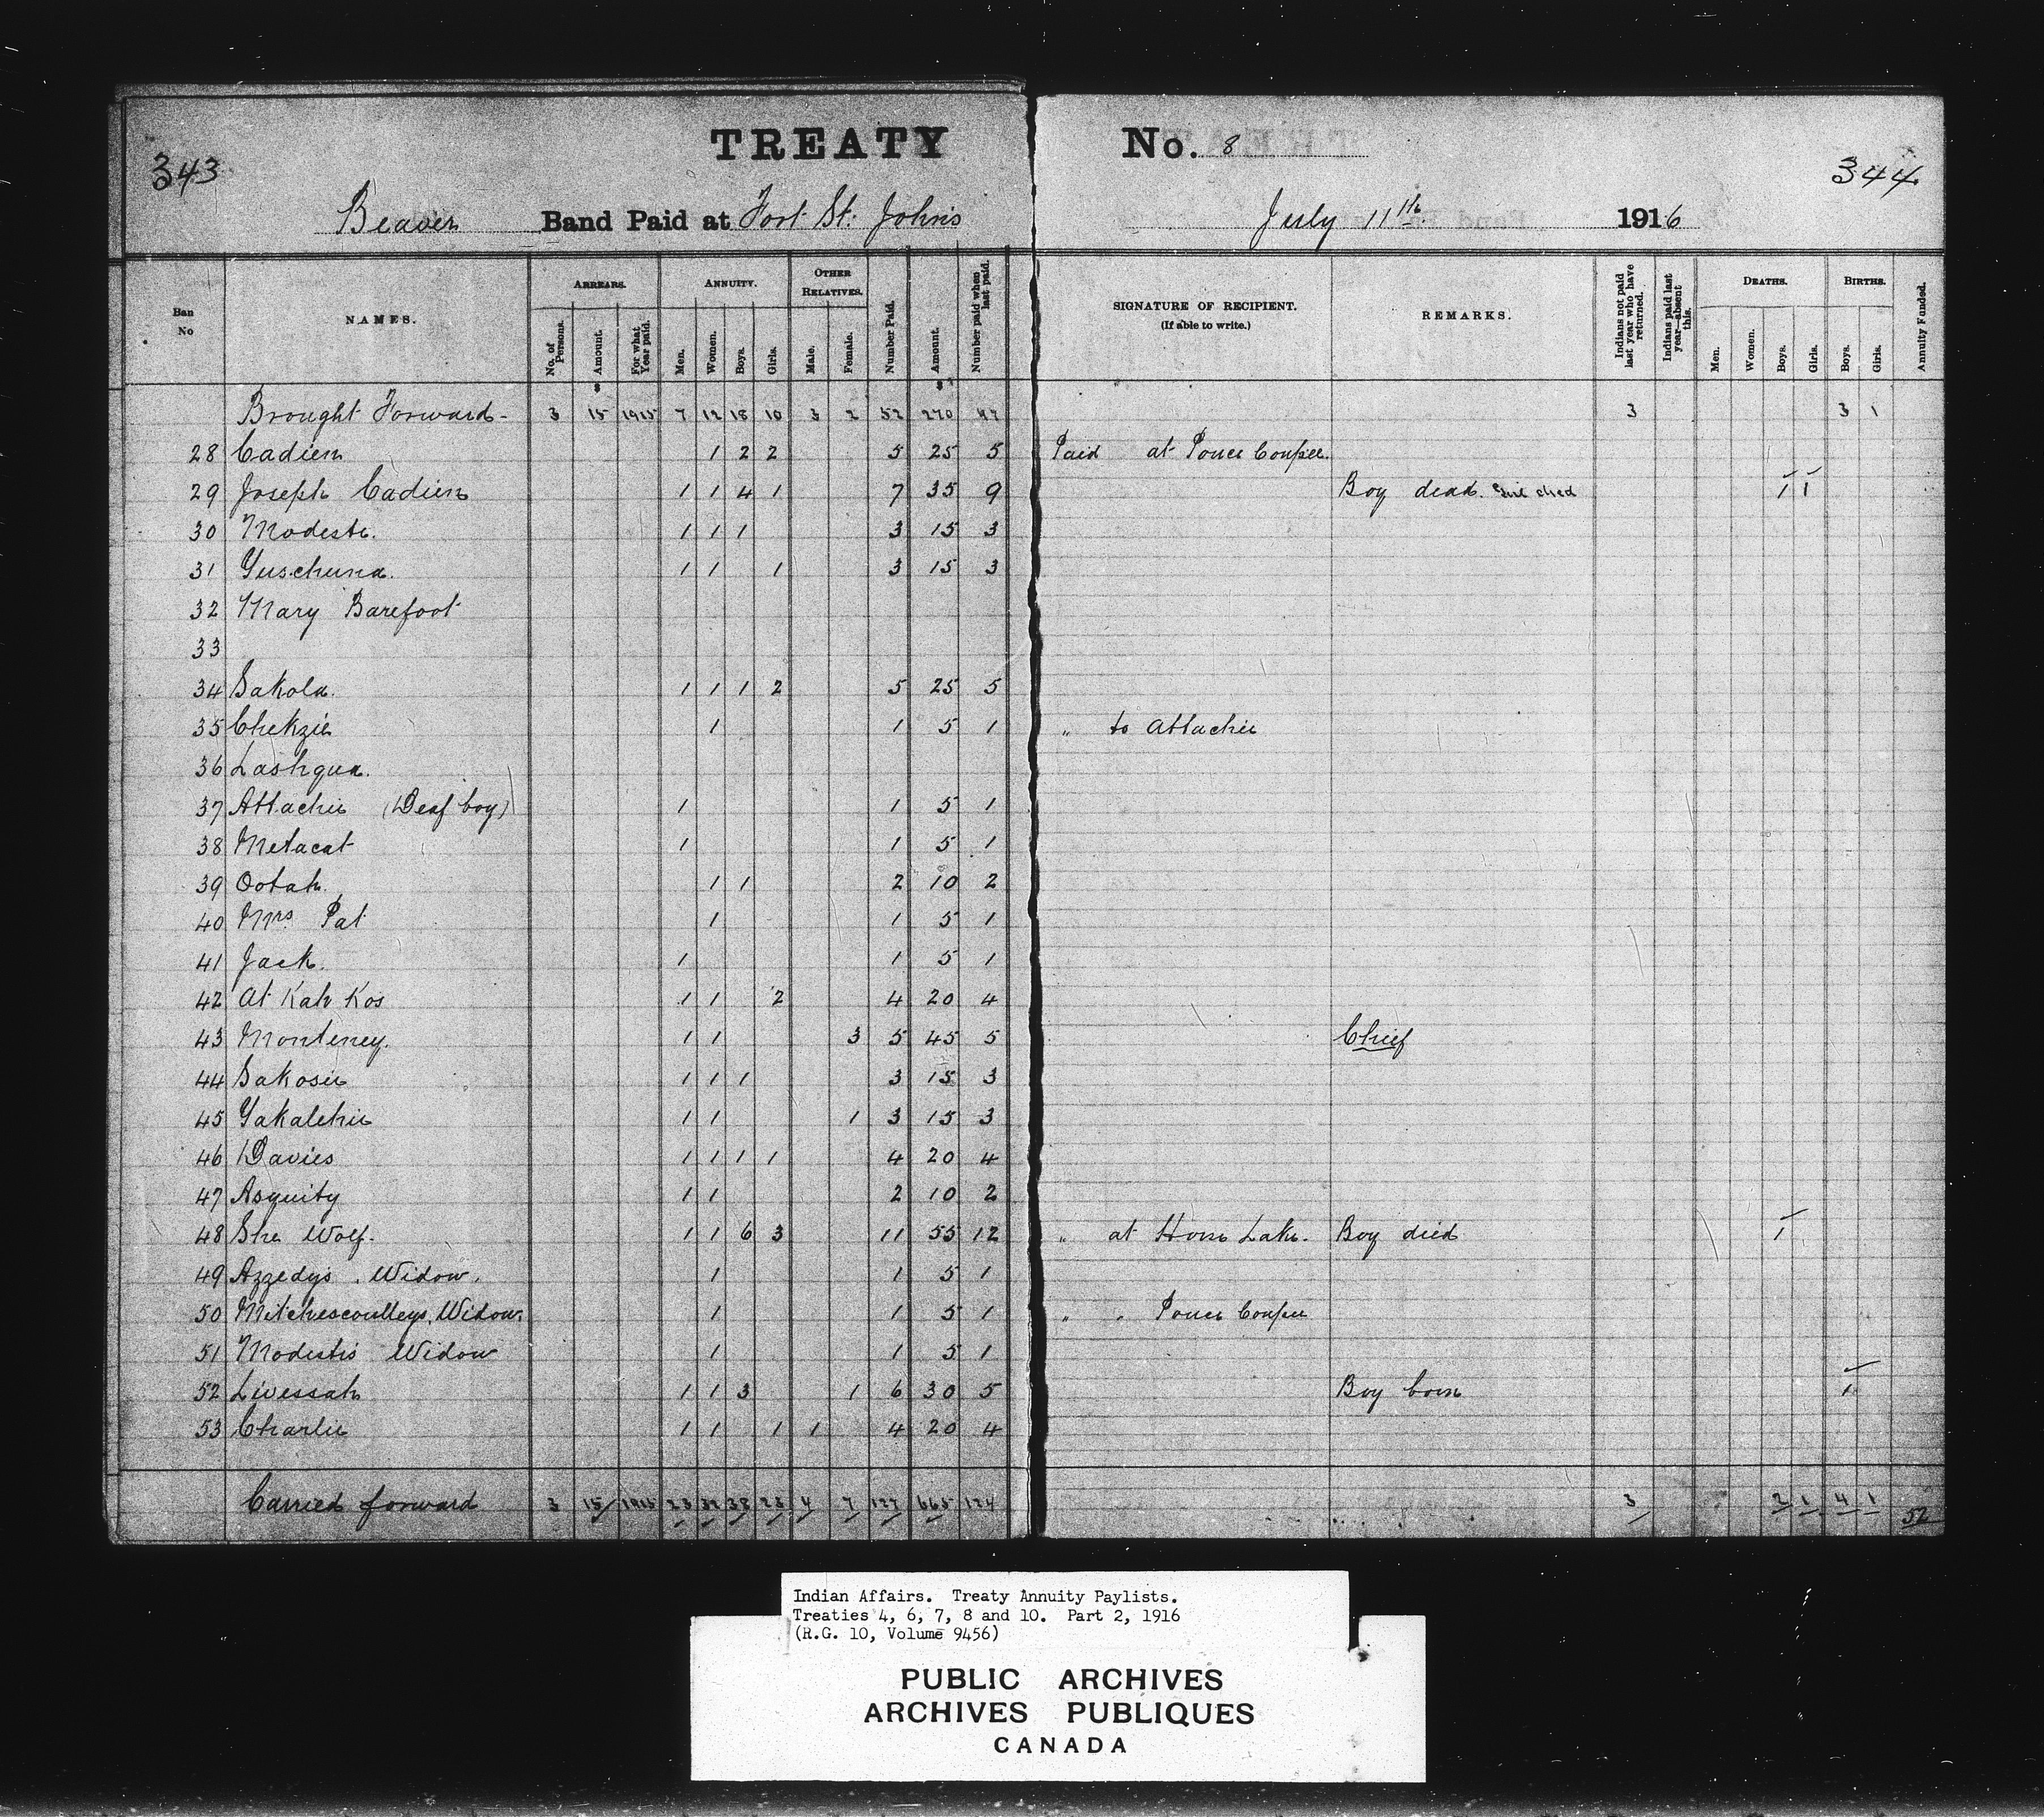 TREATY No. 8
343
344
Beaver Band Paid at Fort St. Johns July 11th 1916
Ban No
NAMES.
ARREARS.
No. of Persons.
Amount.
For what Year paid.
ANNUITY.
Men.
Women.
Boys.
Girls.
OTHER RELATIVES.
Male.
Female.
Number Paid.
Amount.
Number paid when last paid.
SIGNATURE OF RECIPIENT.
(If able to write.)
REMARKS.
Indians not paid last year who have returned.
Indians paid last year—absent this.
DEATHS.
Men.
Women.
Boys.
Girls.
BIRTHS.
Boys.
Girls.
Annuity Funded.
$ $
Brought Forward - 3 15 1915 7 12 18 10 3 2 52 270 47 3 3 1
28 Cadien 1 2 2 5 25 5 Paid at Pouce Coupee.
29 Joseph Cadien 1 1 4 1 7 35 9 Boy dead. Girl died 1 1
30 Modeste. 1 1 1 3 15 3
31 Yuschuna. 1 1 1 3 15 3
32 Mary Barefoot
33
34 Sakola. 1 1 1 2 5 25 5
35 Chekzie 1 1 5 1 " to Attachie
36 Lashqua.
37 Attachie (Deaf boy) 1 1 5 1
38 Metacat 1 1 5 1
39 Ootah. 1 1 2 10 2
40 Mrs. Pat 1 1 5 1
41 Jack. 1 1 5 1
42 At Kah Kos 1 1 2 4 20 4
43 Monteney. 1 1 3 5 45 5 Chief
44 Sakosie 1 1 1 3 15 3
45 Yakalchie 1 1 1 3 15 3
46 Davies 1 1 1 1 4 20 4
47 Asquity 1 1 2 10 2
48 She Wolf. 1 1 6 3 11 55 12 " at Horse Lake. Boy died 1
49 Azzedys. Widow. 1 1 5 1
50 Mitchescoulleys, Widow. 1 1 5 1 " " Pouce Coupee
51 Modestis Widow 1 1 5 1
52 Livessah 1 1 3 1 6 30 5 Boy born 1
53 Charlie 1 1 1 1 4 20 4
Carried forward 3 15 1915 23 32 38 23 4 7 127 665 124 3 2 1 4 1
52
Indian Affairs. Treaty Annuity Paylists.
Treaties 4, 6, 7, 8 and 10. Part 2, 1916
(R.G. 10, Volume 9456)
PUBLIC ARCHIVES
ARCHIVES PUBLIQUES
CANADA